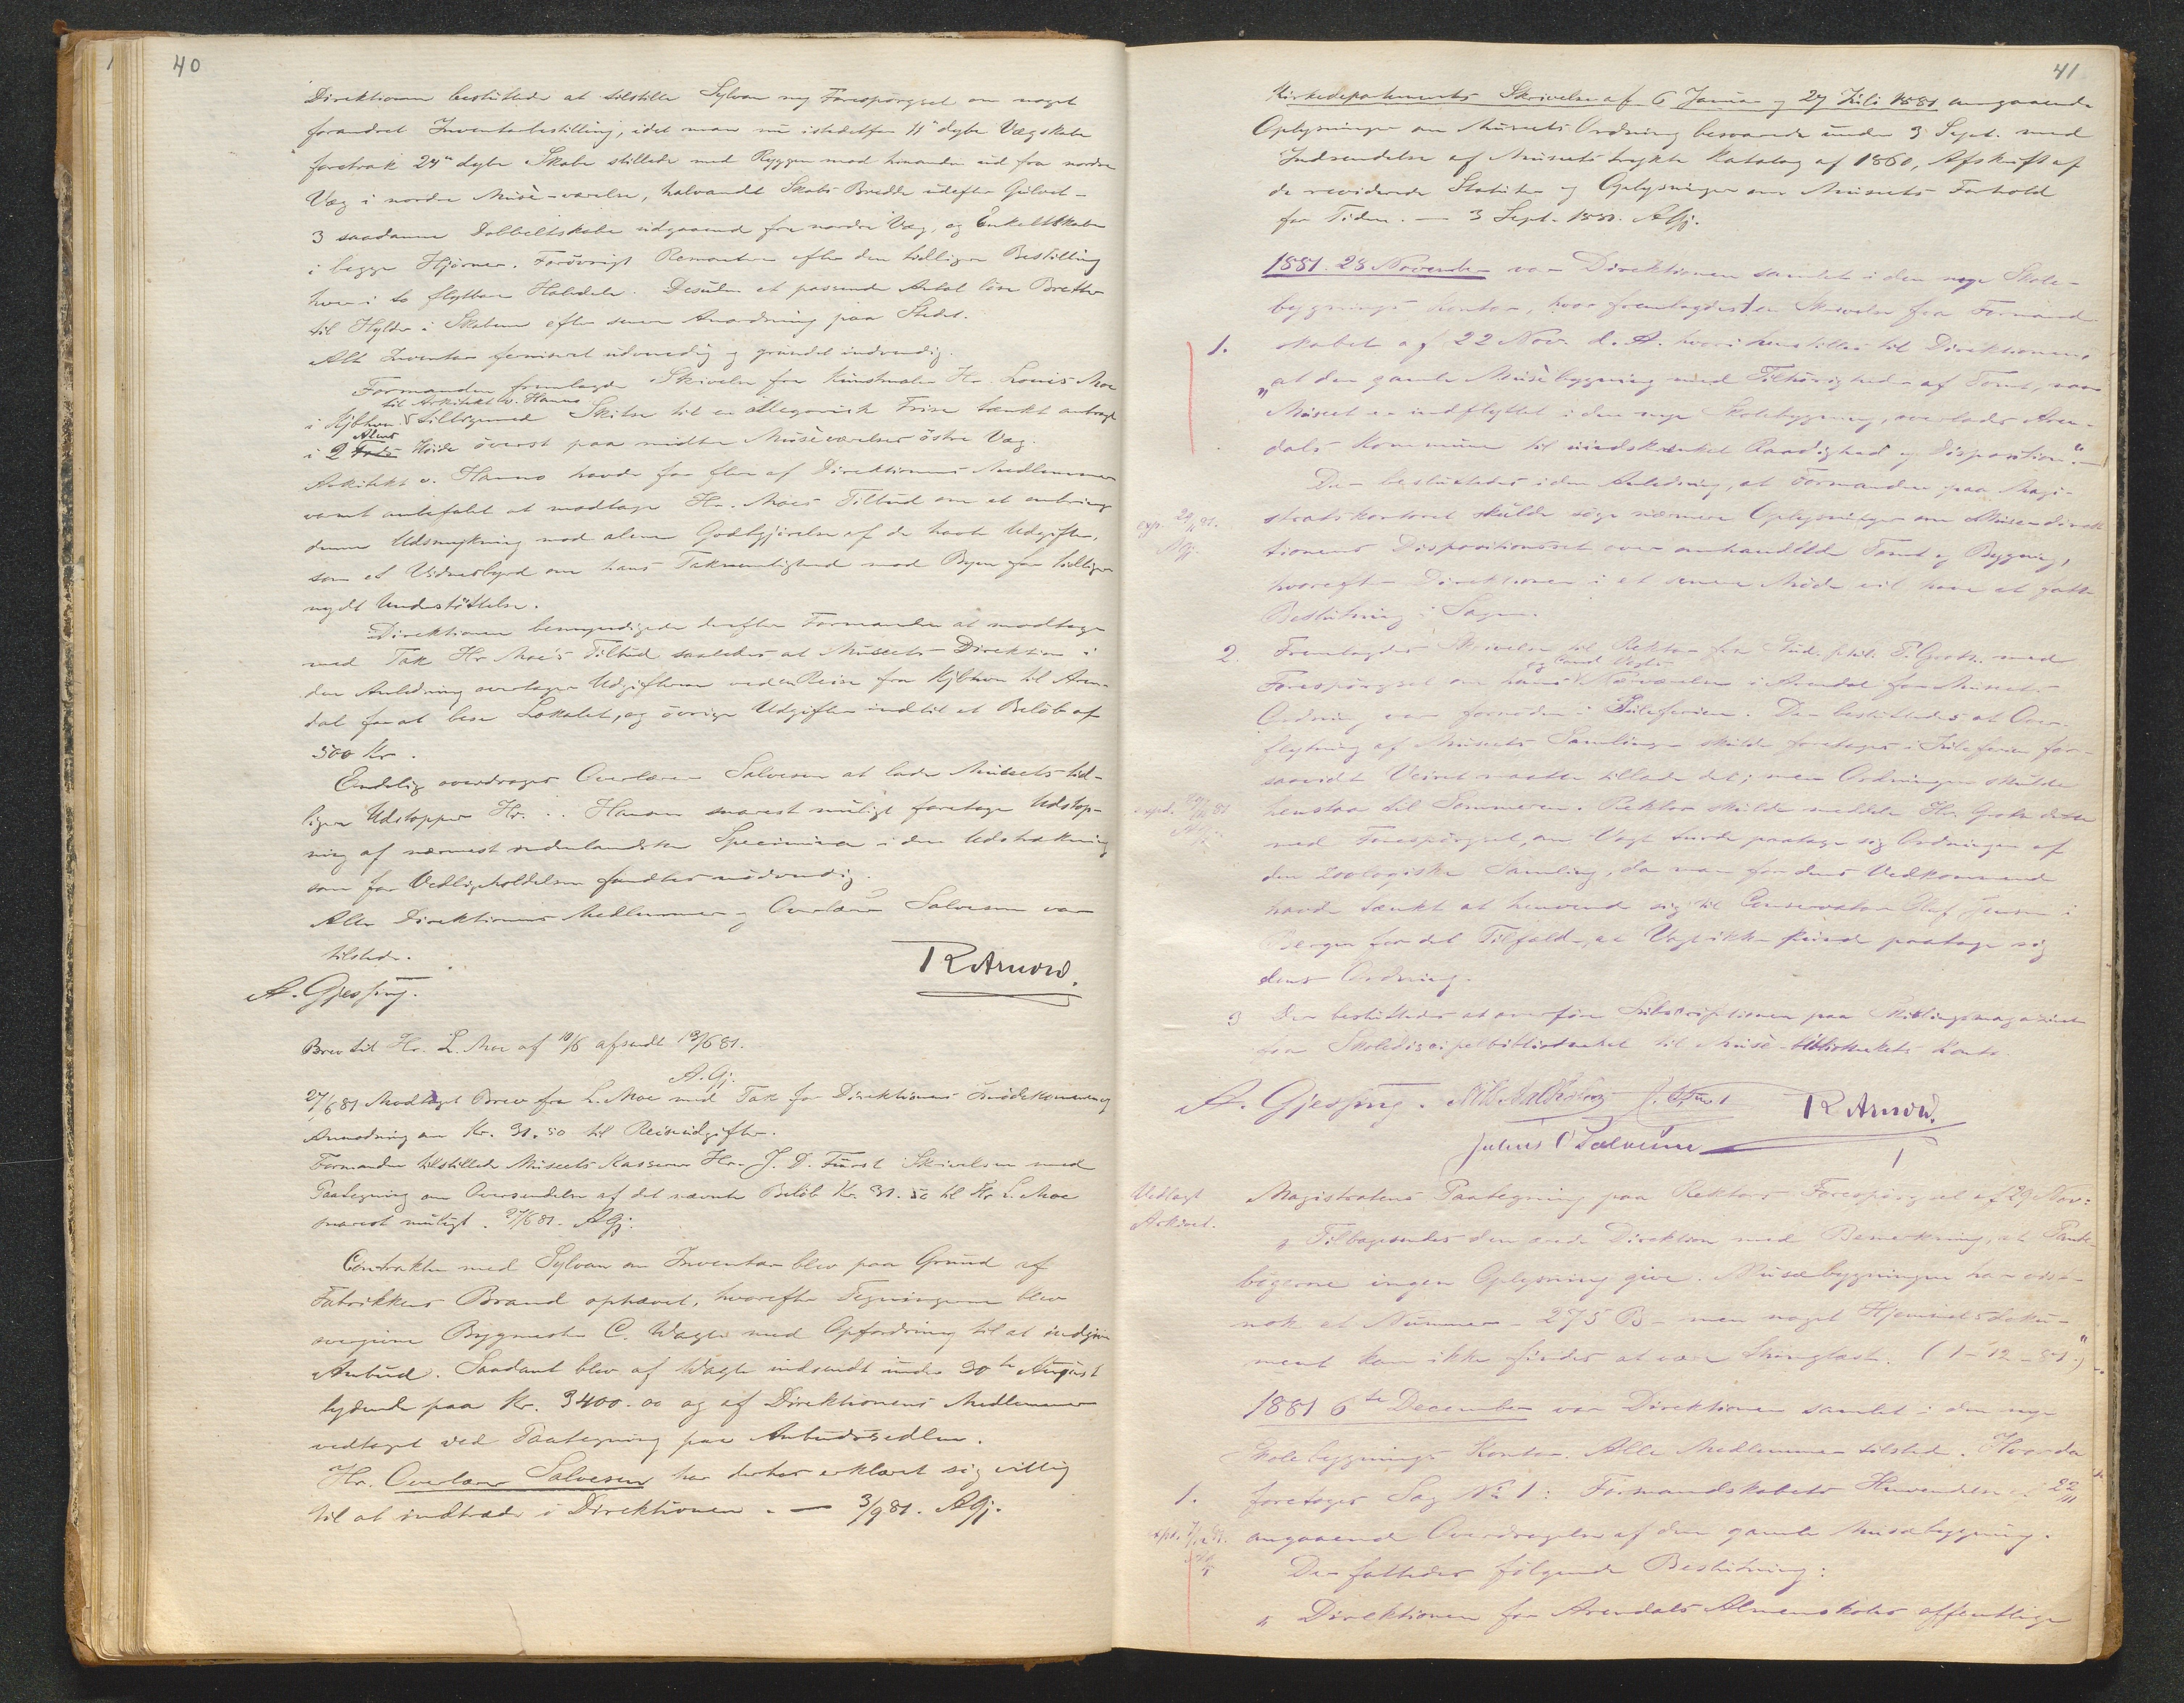 40
Direktionen besluttede at tilstille Sylvan ny Forespørgsel om noget
forandret Inventarbestilling, idet man nu istedetfor 11" dybe Vægskabe
foretrak 24" dybe Skabe stillede med Ryggen mod hinanden ud fra nordre
Væg i nordre Musè-værelse, halvandt Skabs Bredde udefter Gulvet –
3 saadanne Dobbeltskabe udgaaende fra nordre Væg, og Enkeltskabe
i begge Hjørner. Forövrigt Remontrer efter den tidligere Bestilling
hver i to flytbare Halvdele. Desuden et passende Antal löse Bretter
til Hylder i Skabene efter senere Anordning paa Stedet.
Alt Inventar ferniseret udvendig og grundet indvendig.
Formanden fremlagde Skrivelse fra Kunstmaler Hr. Louis Moe
til Arkitekt v. Hanno
i Kjbhvn tilligemed Skitse til en allegorisk Frise tænkt anbragt
Alens
i 2 Fods Höide överst paa midtre Musèværelses östre Væg.
Arkitekt v. Hanno havde for flere af Direktionens Medlemmer
varmt anbefalet at modtage Hr. Moes Tilbud om at anbringe
denne Udsmykning mod alene Godtgjörelse af de havte Udgifter,
som et Vidnesbyrd om hans Taknemlighed mod Byen for tidligere
nydt Understöttelse.
Direktionen bemyndigede derefter Formanden at modtage
med Tak Hr Moe's Tilbud saaledes at Museets Direktion i
den Anledning overtager Udgifterne ved en Reise fra Kjbhvn til Aren-
dal for at bese Lokalet, og övrige Udgifter indtil et Belöb af
500 Kr.
Endelig overdroges Overlærer Salvesen at lade Museets tid-
ligere Udstopper Hr. . . Hansen snarest muligt foretage Udstop-
ning af nærmest indenlandske Specimina i den Udstrækning
som for Vedligeholdelsen fandtes nödvendig.
Alle Direktionens Medlemmer og Overlærer Salvesen var
tilstede.
R Arnord.
A. Gjessing.
Brev til Hr. L. Moe af 10/6 afsendt 13/6 81.
A. Gj.
27/6 81 Modtaget Brev fra L. Moe med Tak for Direktionens Imödekommen og
Anmodning om Kr. 31.50 til Reiseudgifter.
Formanden tilstillede Museets Kasserer Hr. J. D. Fürst Skrivelsen med
Paategning om Oversendelse af det nævnte Belöb Kr. 31.50 til Hr L. Moe
snarest muligt. 27/6 81. AGj.
Contrakten med Sylvan om Inventar blev paa Grund af
Fabrikkens Brand ophævet, hvorefter Tegningerne blev
overgivne Bygmester C. Wagle med Opfordring til at indgive
Anbud. Saadant blev af Wagle indsendt under 30te August
lydende paa Kr. 3400.00 og af Direktionens Medlemmer
vedtaget ved Paategning paa Anbudssedlen.
Hr. Overlærer Salvesen har derhos erklæret sig villig
til at indtræde i Direktionen. — 3/9 81. AGj.
41
Kirkedepartments Skrivelse af 6 Januar og 27 Juli 1881 angaaende
Oplysninger om Museets Ordning besvarede under 3 Sept. med
Indsendelse af Museets trykte Katalog af 1860, Afskrift af
de reviderede Statuter og Oplysninger om Museets Forhold
for Tiden. — 3 Sept. 1881. AGj.
1881. 28 November var Direktionen samlet i den nye Skole-
bygnings Kontor, hvor fremlagdes 1) en Skrivelse fra Formand-
1. skabet af 22 Nov. d. A. hvori henstilles til Direktionen,
"at den gamle Musèbygning med Tilhörigheder af Tomt, naar
Museet er indflyttet i den nye Skolebygning, overlades Aren-
dals Kommune til uindskrænket Raadighed og Disposition". –
Der besluttedes i den Anledning, at Formanden paa Magi-
exp. 29/11 81. AGj.
stratskontoret skulde söge nærmere Oplysninger om Museumsdirek-
tionens Dispositionsret over omhandlede Tomt og Bygning,
hvorefter Direktionen i et senere Möde vil have at fatte
Beslutning i Sagen.
2. Fremlagdes Skrivelse til Rektor fra Stud. phil. P. Groth. med
og Cand Vogts
Forespörgsel om hans Nærværelse i Arendal for Museets
Ordning var fornöden i Juleferien. Der besluttedes at Over-
flytning af Museets Samlinger skulde foretages i Juleferien for-
saavidt Veiret maatte tillade det; men Ordningen skulde
henstaa til Sommeren. Rektor skulde meddele Hr. Groth dette
exped. 81 AGj.
med Forespörgsel, om Vogt turde paatage sig Ordningen af
den zoologiske Samling, da man for dens Vedkommende
havde tænkt at henvende sig til Conservator Oluf Jensen i
Bergen for det Tilfælde, at Vogt ikke kunde paatage sig
dens Ordning.
3 Der besluttedes at overföre Subskriptionen paa Skillingsmagazinet
fra Skoledisciplebibliotheket til Musè-bibliothekets Konto.
A. Gjessing. R Arnord.
Julius O Salvesen
Vedlagt
Arkivet.
Magistratens Paategning paa Rektors Forespörgsel af 29 Nov:
"Tilbagesendes den ærede Direktion med Bemærkning, at Pante-
bögerne ingen Oplysning give. Musæbygningen har vist-
nok et Nummer – 275 B – men noget Hjemmelsdoku-
ment kan ikke findes at være thinglæst. (1 – 12 – 81.)"
1881 6te December var Direktionen samlet i den nye
Skolebygnings Kontor. Alle Medlemmer tilstede. Hvorda
1. foretoges Sag No 1: Formandskabets Henvendelse af 22/11
angaaende Overdragelse af den gamle Musæbygning.
Der fattedes fölgende Beslutning:
"Direktionen for Arendals Almenskoles offentlige